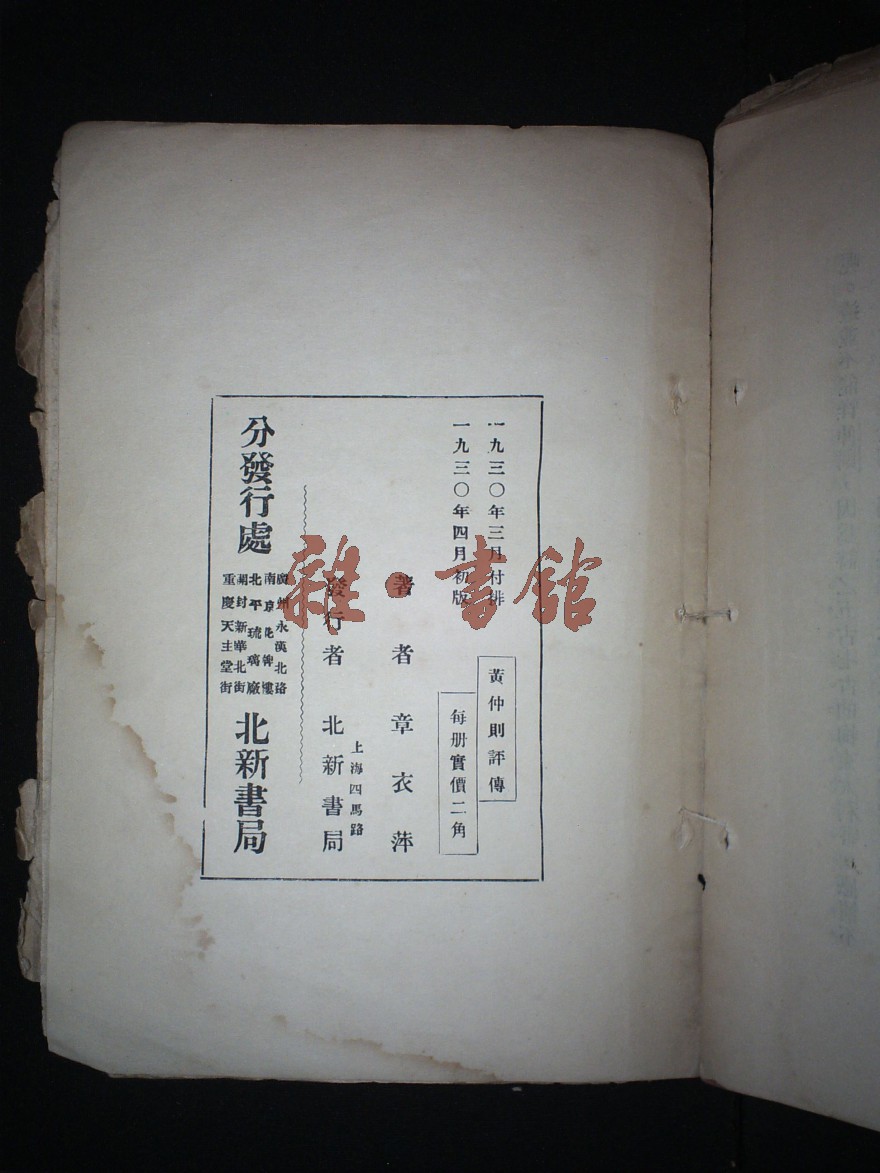 一九三〇年三月付排
一九三〇年四月初版
黃仲則評傳
每册實價二角
著者章衣萍
上海四馬路
發行者北新書局
分發行處
廣州永漢北路
南京花牌樓
北平琉璃廠
開封新華北街
重慶天主堂街
北新書局
雜·書館